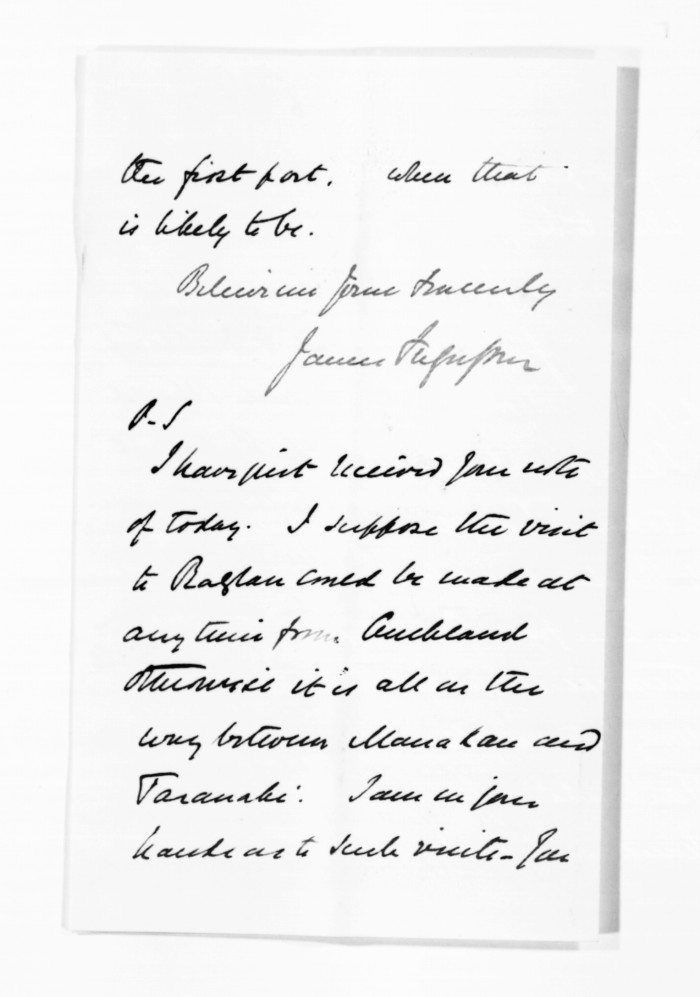 the first port. when that
is likely to be.
Believe me Yours sincerely
James Fergusson
P-S
I have just received your note
of today. I suppose the visit
to Raglan could be made at
any time from Auckland
otherwise it is all on the
way between Manakau and
Taranaki. I am in your
hands as to such visits - You